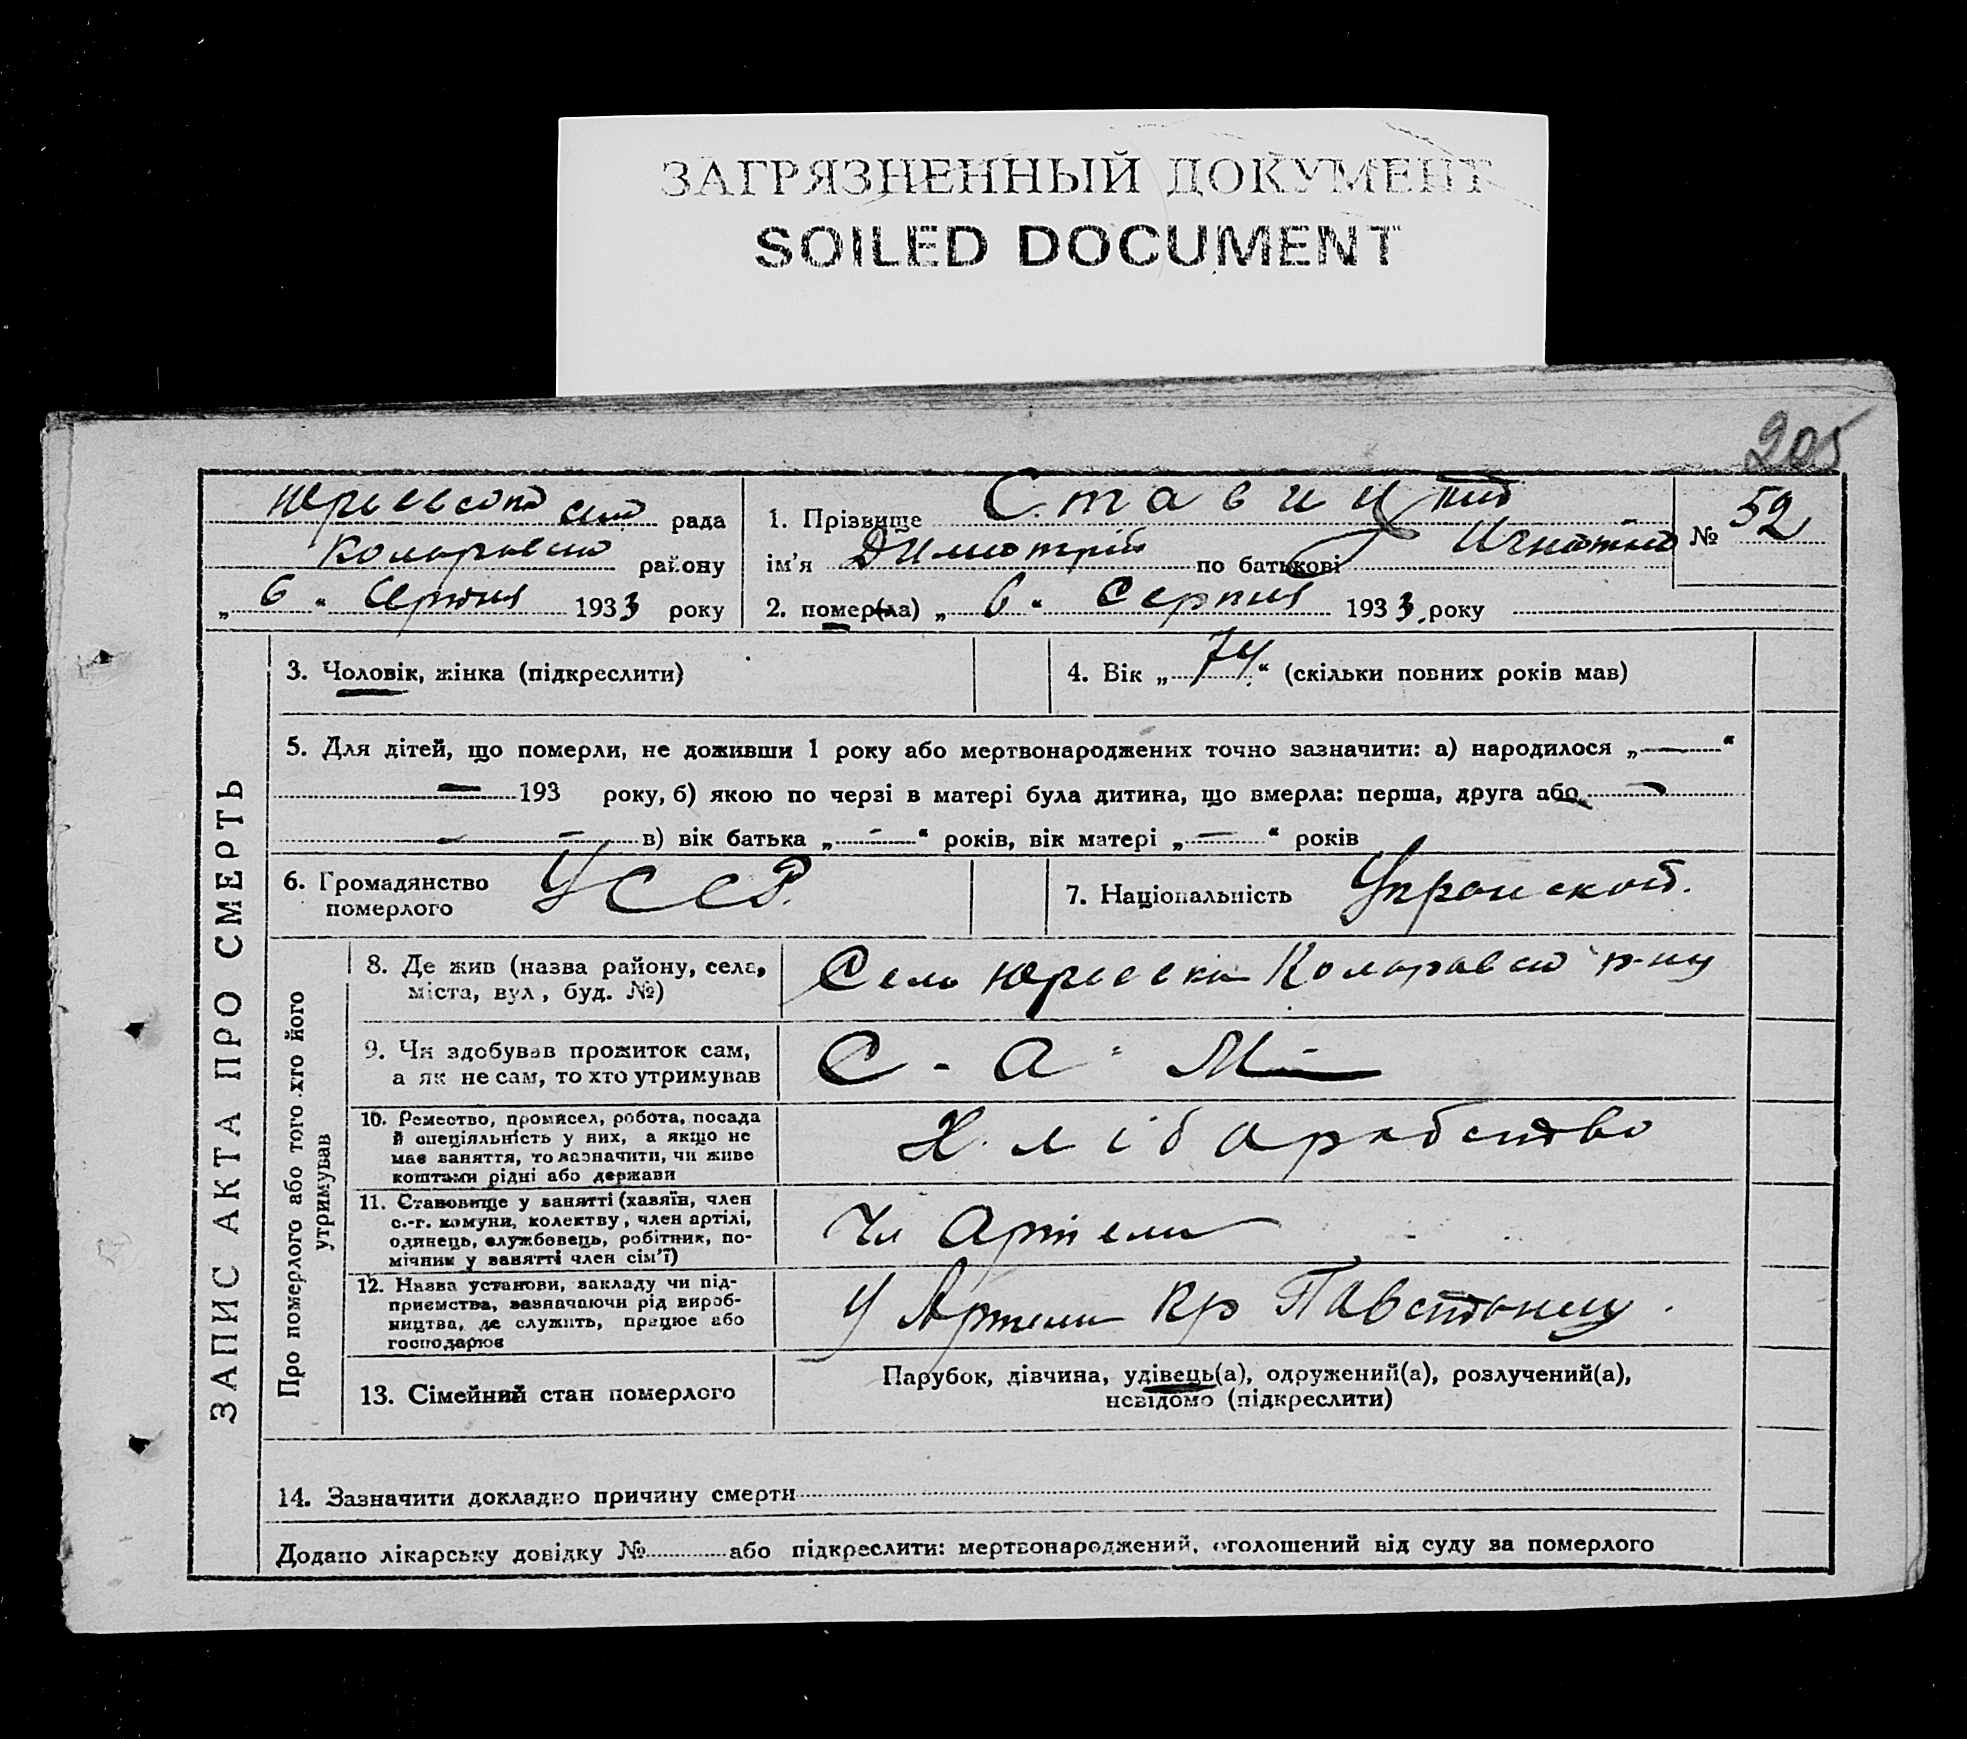 ЗАГРЯЗНЕННЫЙ ДОКУМЕНТ
SOILED DOCUMENT
205
рада
району
„ 6 “ Серпня 1933 року
1. Прізвище Ставицкий
ім'я Димитрій по батькові
№ 52
2. помер(ла) „ 6 “ Серпня 1933 року
ЗАПИС АКТА ПРО СМЕРТЬ
3. Чоловік, жінка (підкреслити)
4. Вік „ 74 “ (скільки повних років мав)
5. Для дітей, що померли, не доживши 1 року або мертвонароджених точно зазначити: а) народилося „ — “
— 193 року, б) якою по черзі в матері була дитина, що вмерла: перша, друга або —
— — в) вік батька „ — “ років, вік матері „ — “ років
6. Громадянство
померлого
УССР.
7. Національність
Про померлого або того хто його
утримував
8. Де жив (назва району, села,
міста, вул, буд. №)
Село Юрьевка р-ну
9. Чи здобував прожиток сам,
а як не сам, то хто утримував
С - а - м
10. Ремество, промисел, робота, посада
й спеціяльність у них, а якщо не
має заняття, то зазначити, чи живе
коштами рідні або держави
Хлібаробство
11. Становище у занятті (хазяїн, член
с.-г. комуни, колектву, член артілі,
одинець, службовець, робітник, по-
мічник у занятті член сім'ї)
Чл Артели
12. Назва установи, закладу чи під-
приємства, зазначаючи рід вироб-
ництва, де служить, працює або
господарює
У Артели Кр
13. Сімейний стан померлого
Парубок, дівчина, удівець(а), одружений(а), розлучений(а),
невідомо (підкреслити)
14. Зазначити докладно причину смерти
Додано лікарську довідку № або підкреслити: мертвонароджений, оголошений від суду за померлого